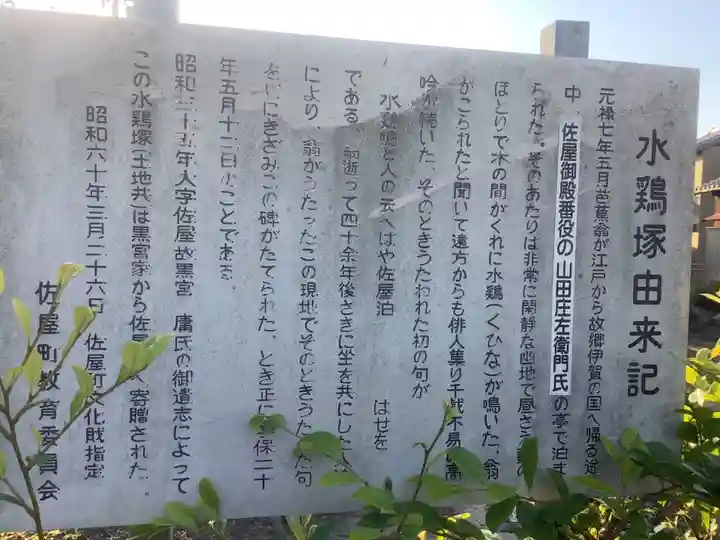 水鶏塚由来記
元禄七年五月芭蕉翁が江戸から故郷伊賀の国へ帰る途
中、佐屋御殿番役の山田庄左衛門氏の亭で泊ま
られた。そのあたりは非常に閑静な幽地で昼さえ
ほとりで木の間がくれに水鶏(くひな)が鳴いた。翁
がこられたと聞いて遠方からも俳人集り千代不易の高
吟が続いた。そのときうたわれた初の句が
水鶏鳴と人の云へばや佐屋泊 はせを
である。翁逝って四十余年後さきに坐を共にした
により、翁がうたったこの現地でそのときうたった句
をいしにきざみこの碑がたてられた。とき正に享保二十
年五月十二日のことである。
昭和三十五年大字佐屋故黒宮庸氏の御遺志によって
この水鶏塚(土地共)は黒宮家から佐屋へ寄贈された。
昭和六十年三月二十六日 佐屋町文化財指定
佐屋町教育委員会